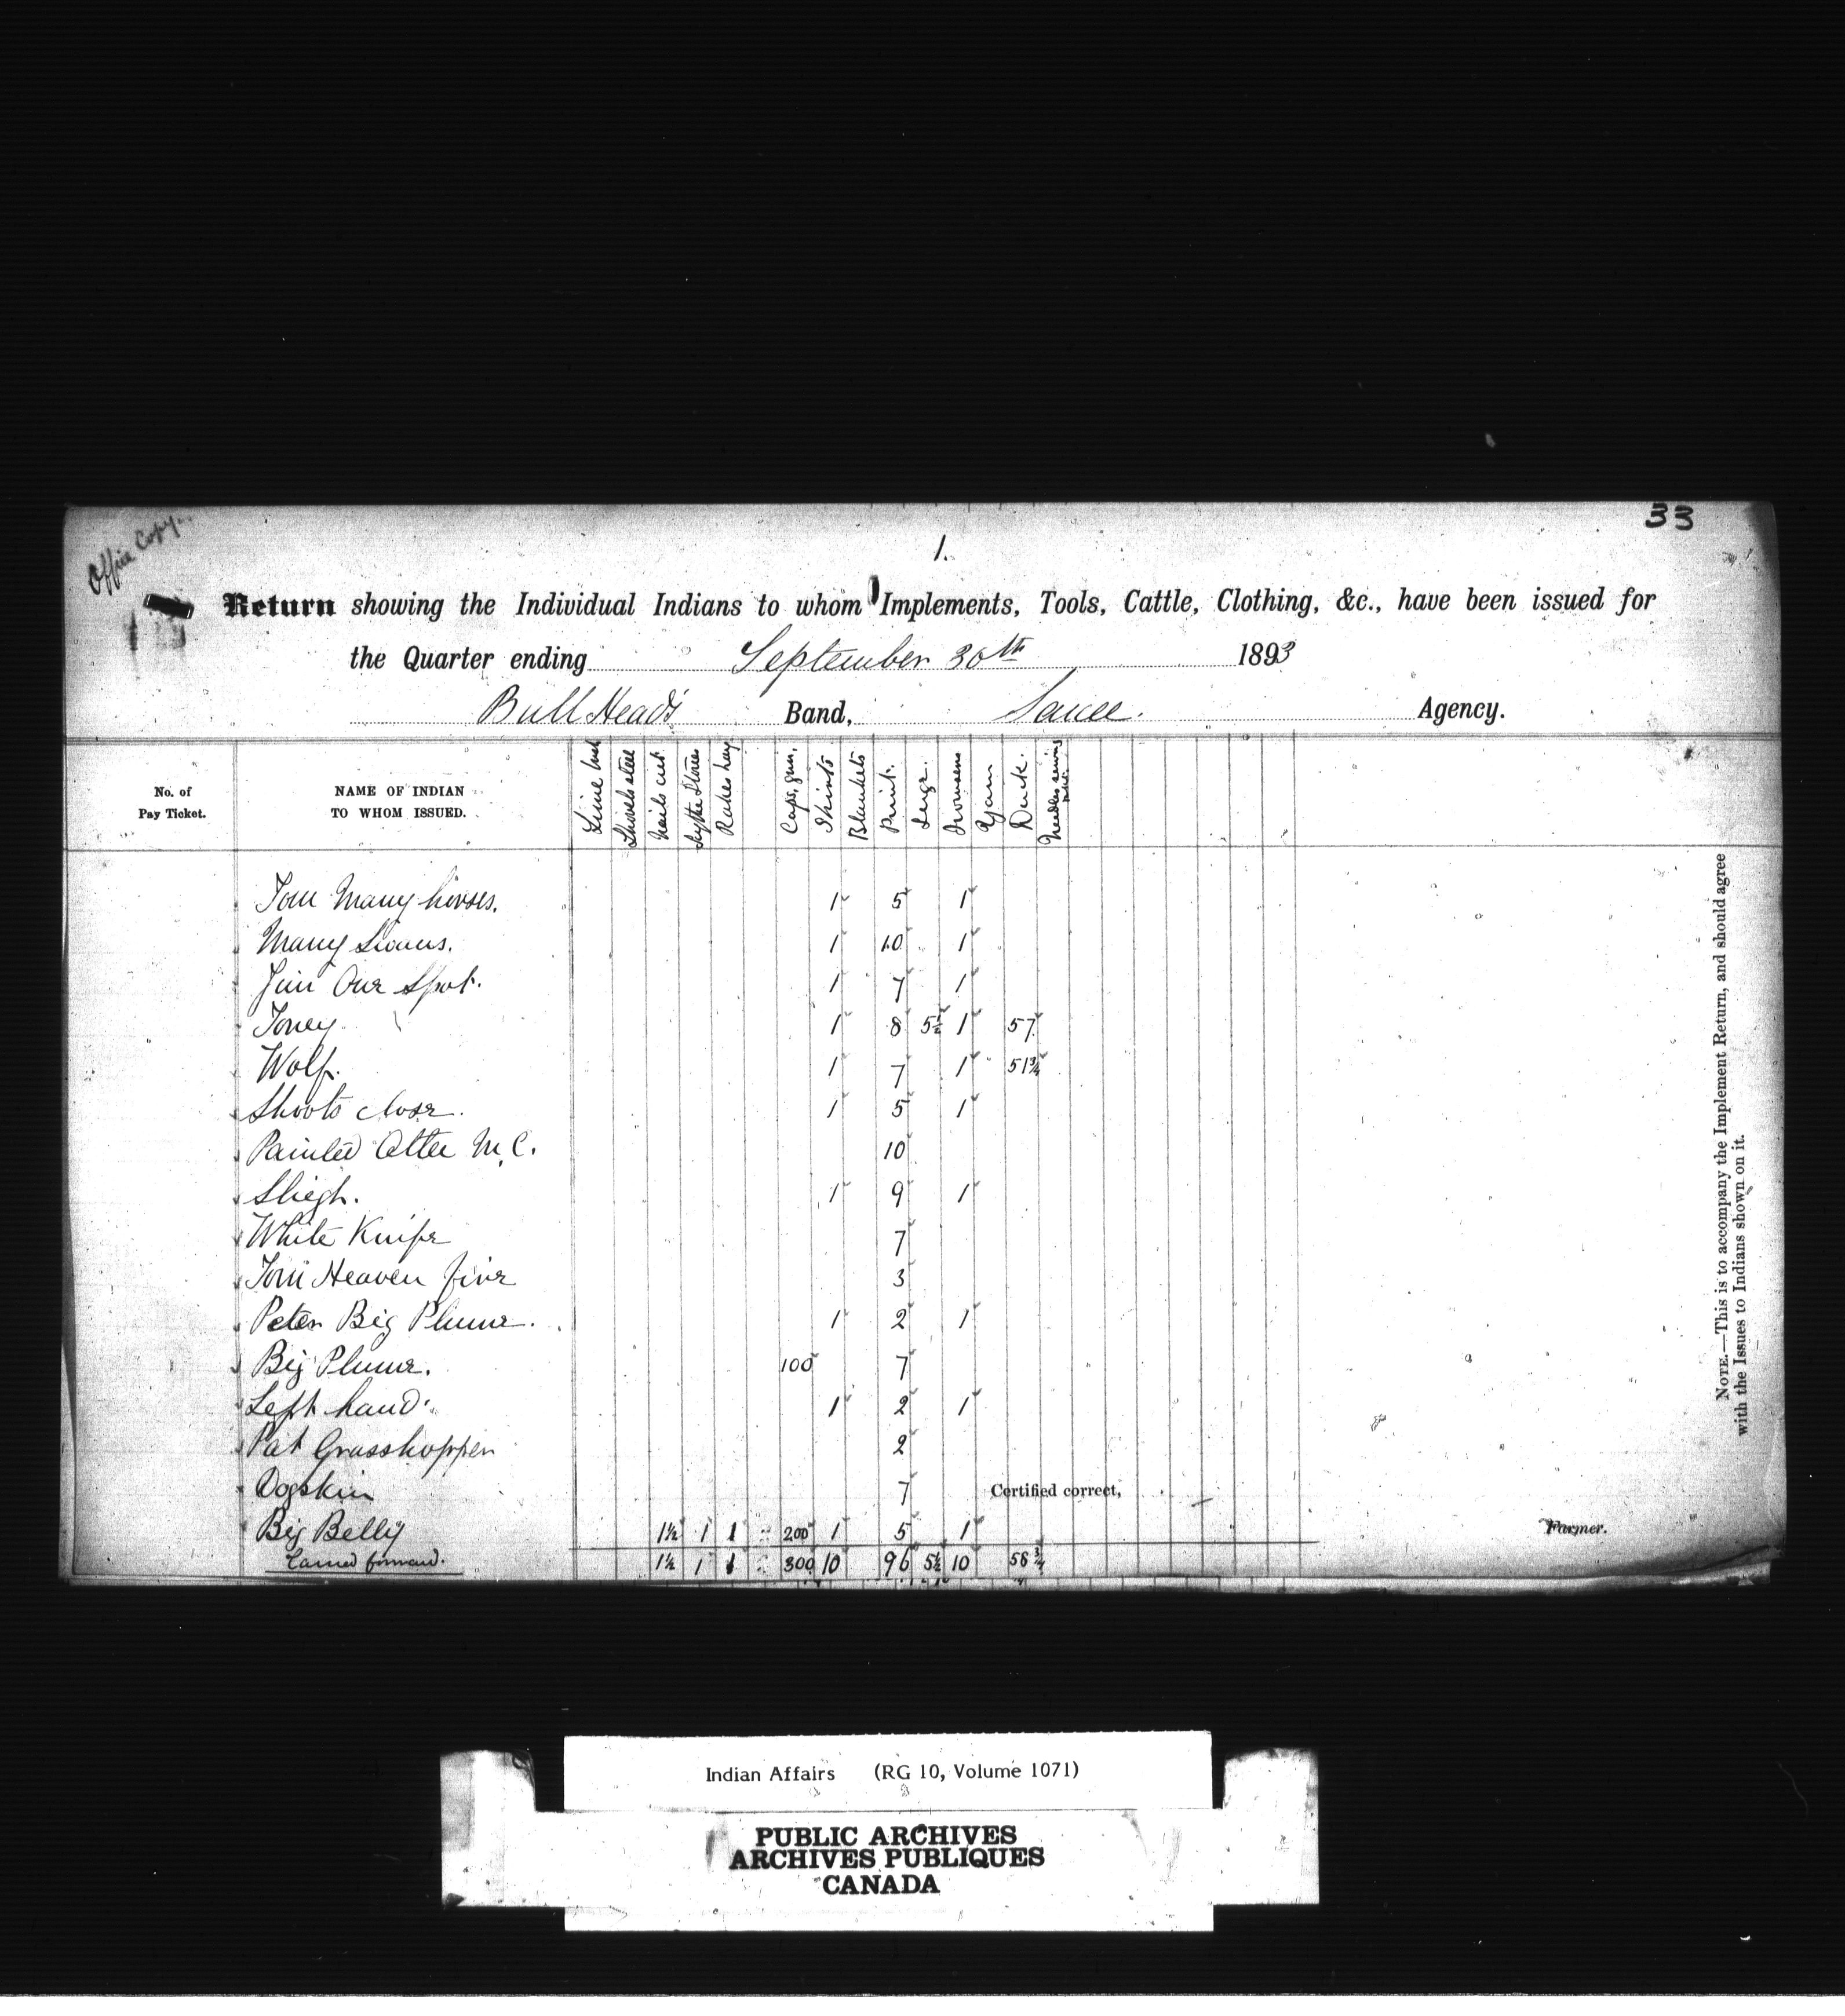 33
Office Copy
1.
Return showing the Individual Indians to whom Implements, Tools, Cattle, Clothing, &c., have been issued for
the Quarter ending September 30th 1893
Bull Head's Band, Sarcee. Agency.
No. of Pay Ticket.
NAME OF INDIAN TO WHOM ISSUED.
Shovels steel
Nails cut
Scythe Stones
Rakes hay
Caps, gun,
Shirts
Blankets
Print.
Serge.
Trowsers
Yarn
Duck.
Needles sewing
Tom Many horses. 1 5 1
Many Sioux. 1 10 1
Jim One Spot. 1 7 1
Toney 1 8 5½ 1 57
Wolf. 1 7 1 51¾
Shoots close. 1 5 1
Painted Otter M.C. 10
Sleigh. 1 9 1
White Knife 7
Tom Heaven fire 3
Peter Big Plume. 1 2 1
Big Plume. 100 7
Left hand. 1 2 1
Pat Grasshopper 2
Dogskin 7
Certified correct,
Big Belly 1½ 1 1 200 1 5 1
Farmer.
Carried forward. 1½ 1 1 300 10 96 5½ 10 58¾
NOTE.—This is to accompany the Implement Return, and should agree
with the Issues to Indians shown on it.
Indian Affairs (RG 10, Volume 1071)
PUBLIC ARCHIVES
ARCHIVES PUBLIQUES
CANADA